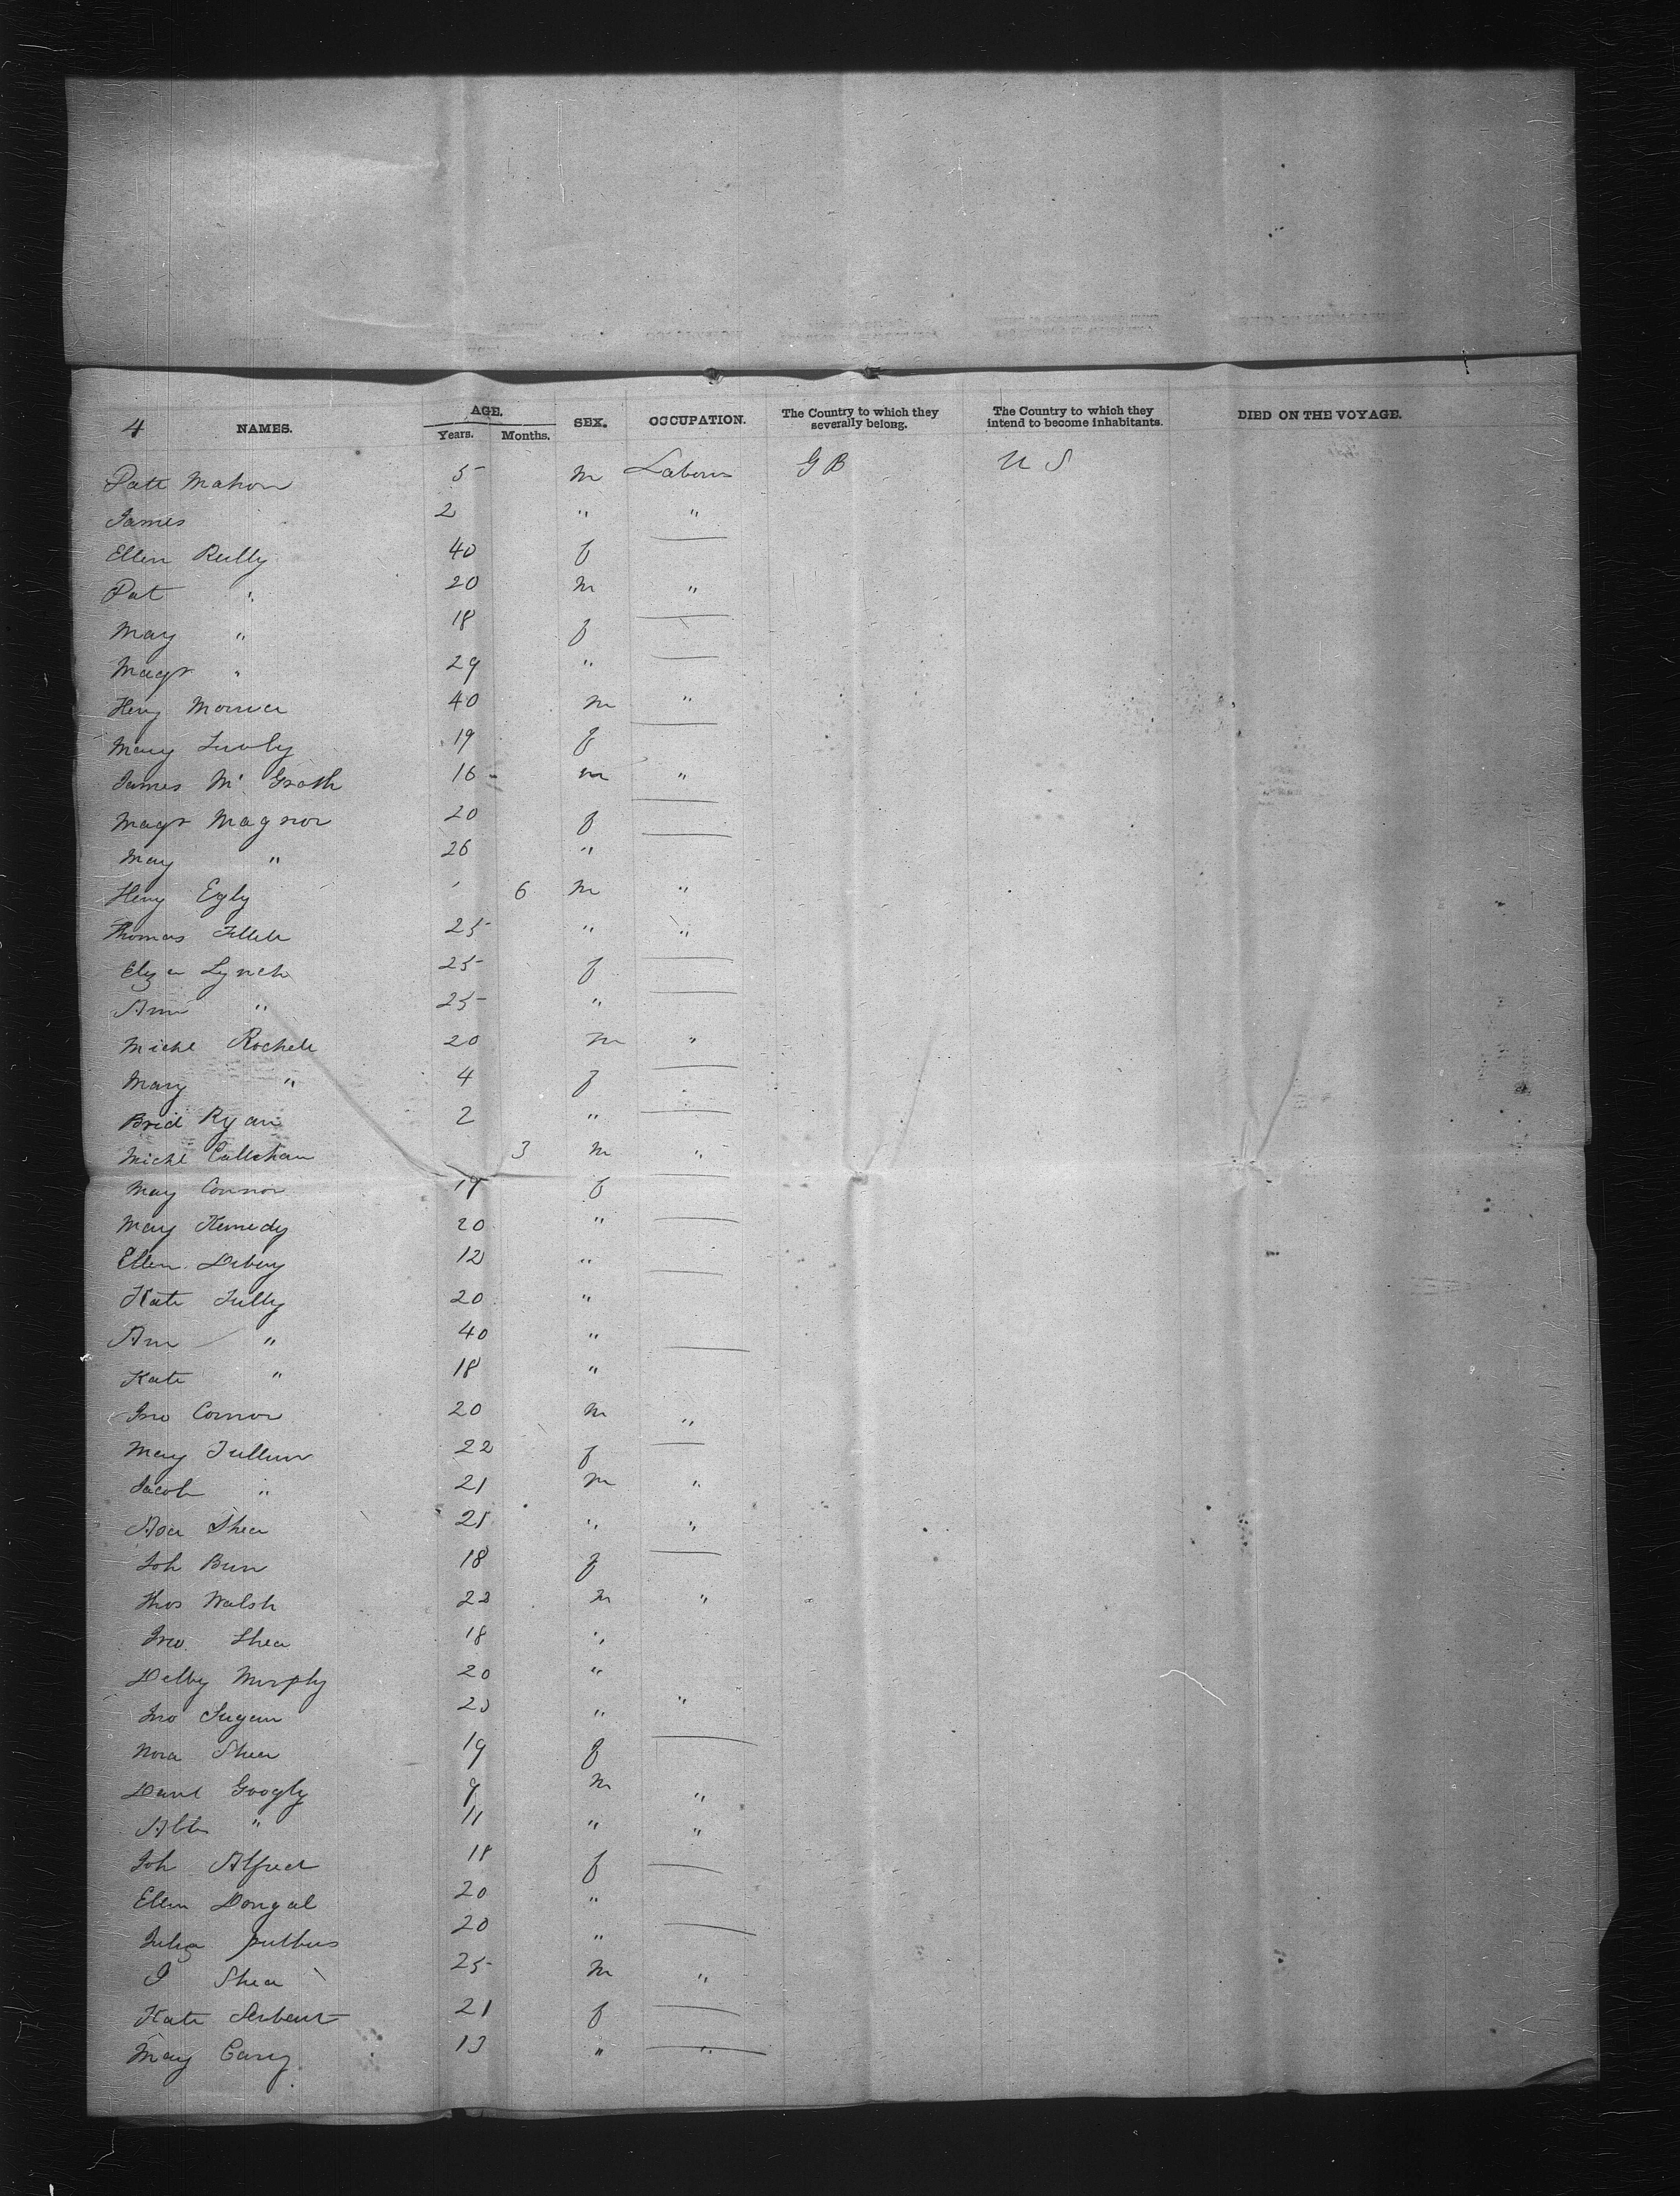 4 NAMES. AGE. Years. Months. SEX. OCCUPATION. The Country to which they severally belong. The Country to which they intend to become inhabitants. DIED ON THE VOYAGE.
Patt Mahon 5 m Labour G B U S
James 2 " "
Ellen Reilly 40 f —
Pat " 20 m "
May " 18 f —
Magt " 29 " —
Heny 40 m "
Mary 19 f —
James Mc Grath 16 m "
Magt Magnor 20 f —
May " 26 " —
Heny Egly 6 m "
Thomas 25 " "
Elza Lynch 25 f —
Ann " 25 " —
Michl Rochele 20 m "
Mary " 4 f —
Brid Ryan 2 " —
Michl Callehan 3 m "
May Connor 19 f —
May Kennedy 20 " —
Ellen 12 " —
Kate Tully 20 "
Ann " 40 " —
Kate " 18 "
Jno Connor 20 m "
May 22 f —
Jacob " 21 m "
Shea 21 " "
Joh Bun 18 f —
Thos Walsh 22 m "
Jno Shea 18 "
Delby Murphy 20 "
Jno 23 " "
Nora Shea 19 f —
Danl Googly 9 m "
" 11 " "
Joh Alfred 18 f —
Ellen Dongal 20 "
Julia 20 " —
J Shea 25 m "
Kate 21 f —
May Carey 13 " "